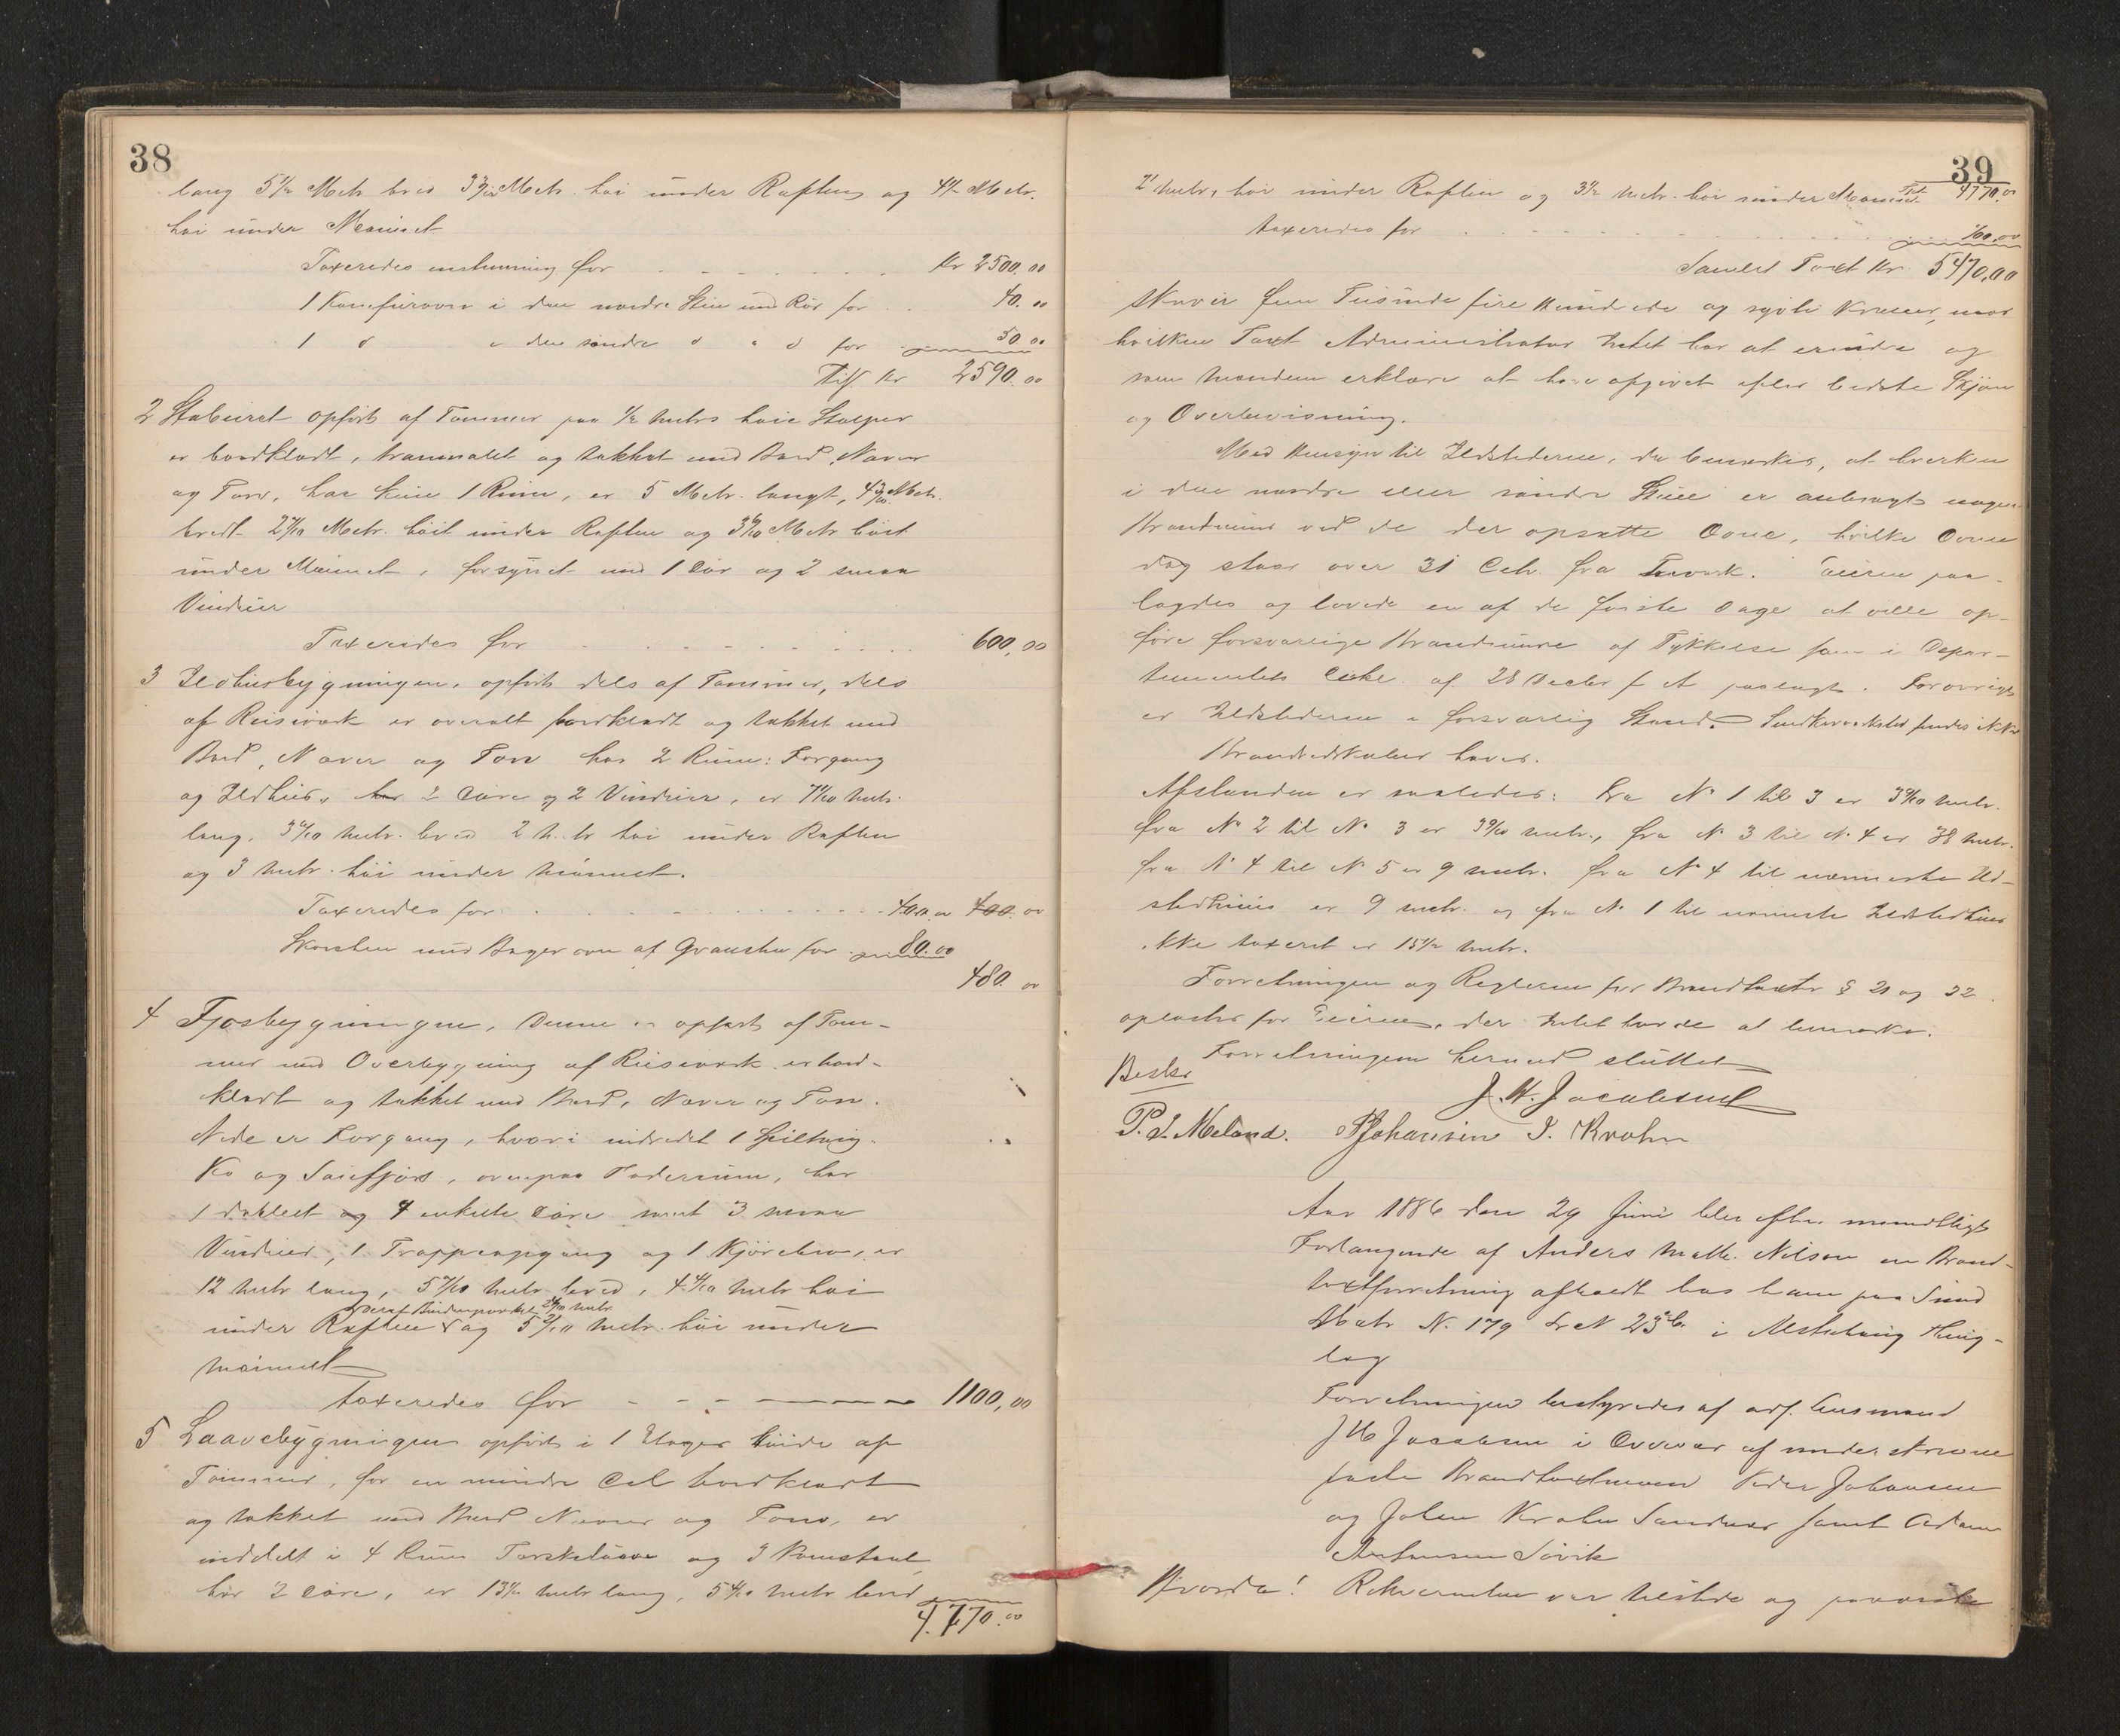 38
lang 5 1/2 Metr bred 3 3/10 Metr. høi under Raften og 4 1/2 Metr.
høi under Mønnet
Taxeredes enstemmig for Kr 2500.00
1 Komfurovn i den nordre Stue med Rør for 40.00
1 d i den søndre d " d for 50.00
Tils. Kr 2590.00
2 Stabburet opført af Tømmer paa 1/2 Metrs høie Stolper
er bordklædt, tranmalet og tækket med Bord, Næver
og Torv, har kun 1 Rum, er 5 Metr. langt, Metr.
bredt 2 Metr. høit under Raften og 3 Metr høit
under Mønnet, forsynet med 1 Dør og 2 smaa
Vinduer
Taxeredes for 600,00
3 Ildhusbygningen, opført dels af Tømmer, dels
af Reisværk er overalt bordklædt og tækket med
Bord, Næver og Torv har 2 Rum: Forgang
og Ildhus, har 2 Døre og 2 Vinduer, er 7 Metr.
lang, 3 Metr. bred 2 Metr høi under Raften
og 3 Metr. høi under Mønnet.
Taxeredes for 400.00 400.00
Skorsten med Bagerovn af Graasten for 80.00
480.00
4 Fjøsbygningen, Denne er opført af Tøm-
mer med Overbygning af Reisværk er bord-
klædt og tækket med Bord, Næver og Torv.
Nede er Forgang, hvori indredet 1 Spiltoug.
Ko og Sauefjøs, ovenpaa Foderrum, har
1 dobbelt og 4 enkelte Døre samt 3 smaa
Vinduer, 1 Trappeopgang og 1 Kjørebro, er
12 Metr lang, 5 Metr bred, 4 4/10 Metr høi
deraf Bindingsværket Metr.
under Raften og 5 2/10 Metr. høi under
Mønnet
taxeredes for 1100,00
5 Laavebygningen opført i 1 Etages Høide af
Tømmer, for en mindre Del bordklædt
og tækket med Bord Næver og Torv, er
inddelt i 4 Rum Tærskelaave og 3
har 2 Døre, er 13 1/2 Metr lang, 5 Metr bred
4.770.00
39
2 Metr. høi under Raften og 3 1/2 Metr. høi under Mønnet Trt. 4770.00
taxeredes for 700,00
Samlet Taxt Kr. 5470,00
skriver fem Tusinde fire Hundrede og sytti Kroner, mod
hvilken Taxt Administrator Intet har at erindre og
som Mændene erklære at have afgivet efter bedste Skjøn
og Overbevisning.
Med Hensyn til Ildstederne, da bemærkes, at hverken
i den nordre eller søndre Stue er anbragt nogen
Brandmur ved de der opsatte Ovne, hvilke Ovne
dog staar over 31 Ctm. fra Træværk. Eieren paa-
lagdes og lovede en af de første Dage at ville op-
føre forsvarlige Brandmure af Tykkelse som i Depar-
tementets Cirkl. af 28 Decbr f. A. paalagt. Forøvrigt
er Ildstederne i forsvarlig Stand. Snedkerværksted findes ikke
Brandredskaber haves.
Afstanden er saaledes: Fra No 1 til 3 er 3 Metr.
fra No 2 til No 3 er 3 Metr., fra No 3 til No. 4 er 38 Metr.
fra No 4 til No 5 er 9 Metr. fra No 4 til nærmeste Ild-
stedhuus er 9 Metr. og fra No 1 til nærmeste Ildstedhuus
ikke taxeret er 15 1/2 Metr.
Forretningen og Reglerne for Brandtaxter § 21 og 32
oplæstes for Eieren, der Intet havde at bemærke.
Forretningen hermed sluttet
J. H. Jacobsen
Beskr
P. J. Meland. P Johansen J. Krohn
Aar 1886 den 29 Juni blev efter mundtligt
Forlangende af Anders Math. Nilsen en Brand-
taxtforretning afholdt hos ham paa Sund
Matr No. 179 Lr No 23 b. i Alstahaug Thing-
lag
Forretningen bestyredes af const. Lensmand
J H Jacobsen i Overvær af underskrevne
faste Brandtaxtmænd Peder Johansen
og Johan Krohn Sandnes samt Adam
Antonsen Søvik
Hvorda! Rekvirenten var tilstede og paaviste